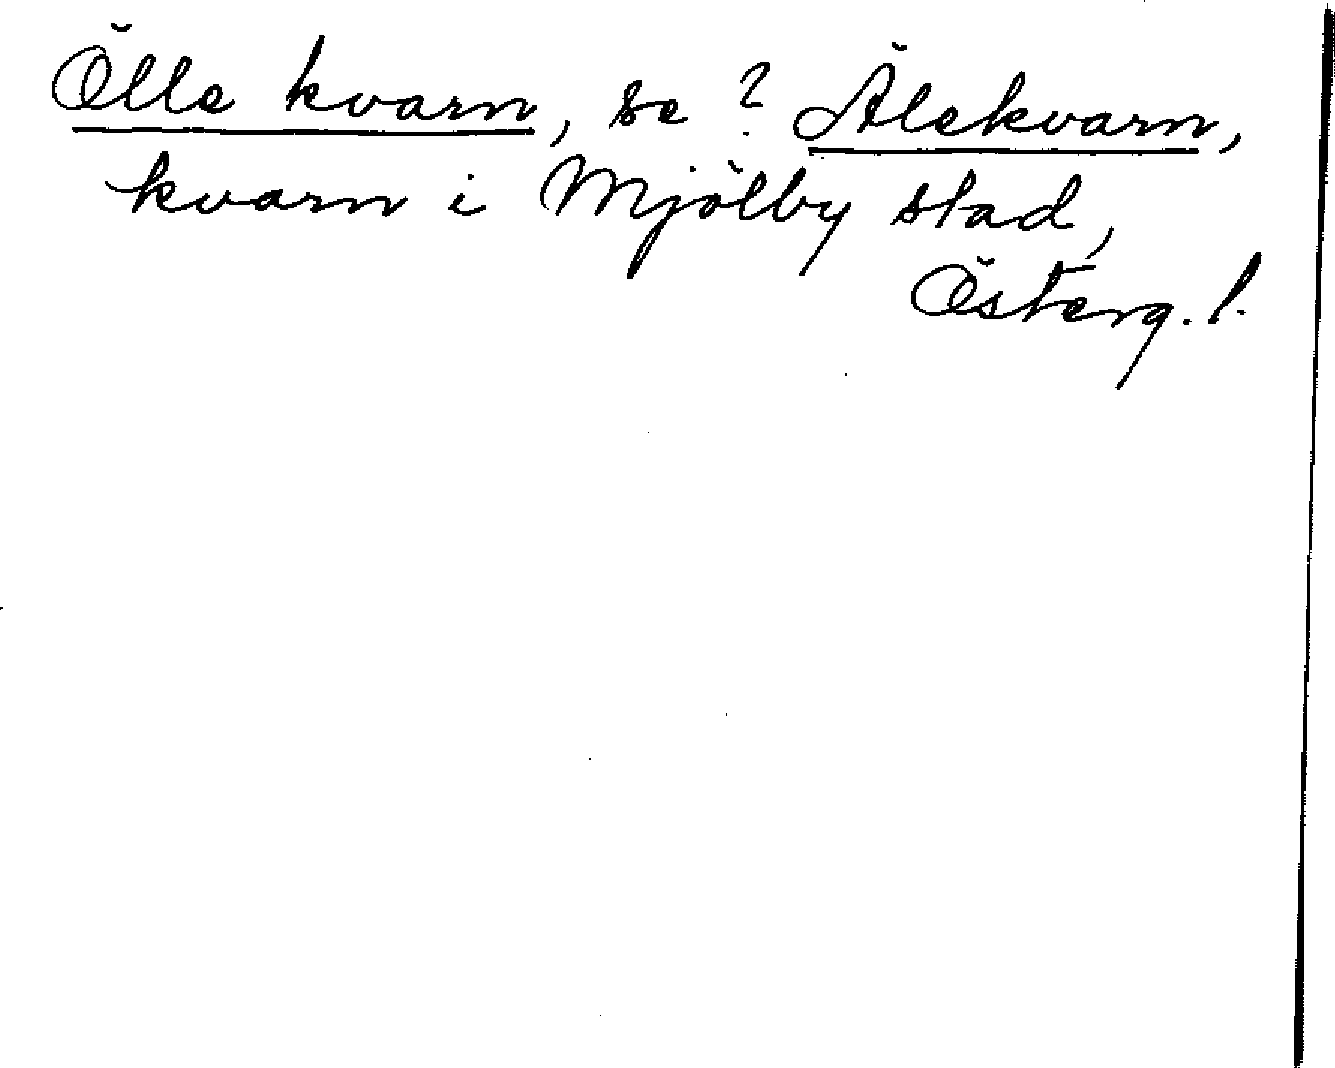 Ölle kvarn, se ? Älekvarn,
kvarn i Mjölby stad,
Österg. l.